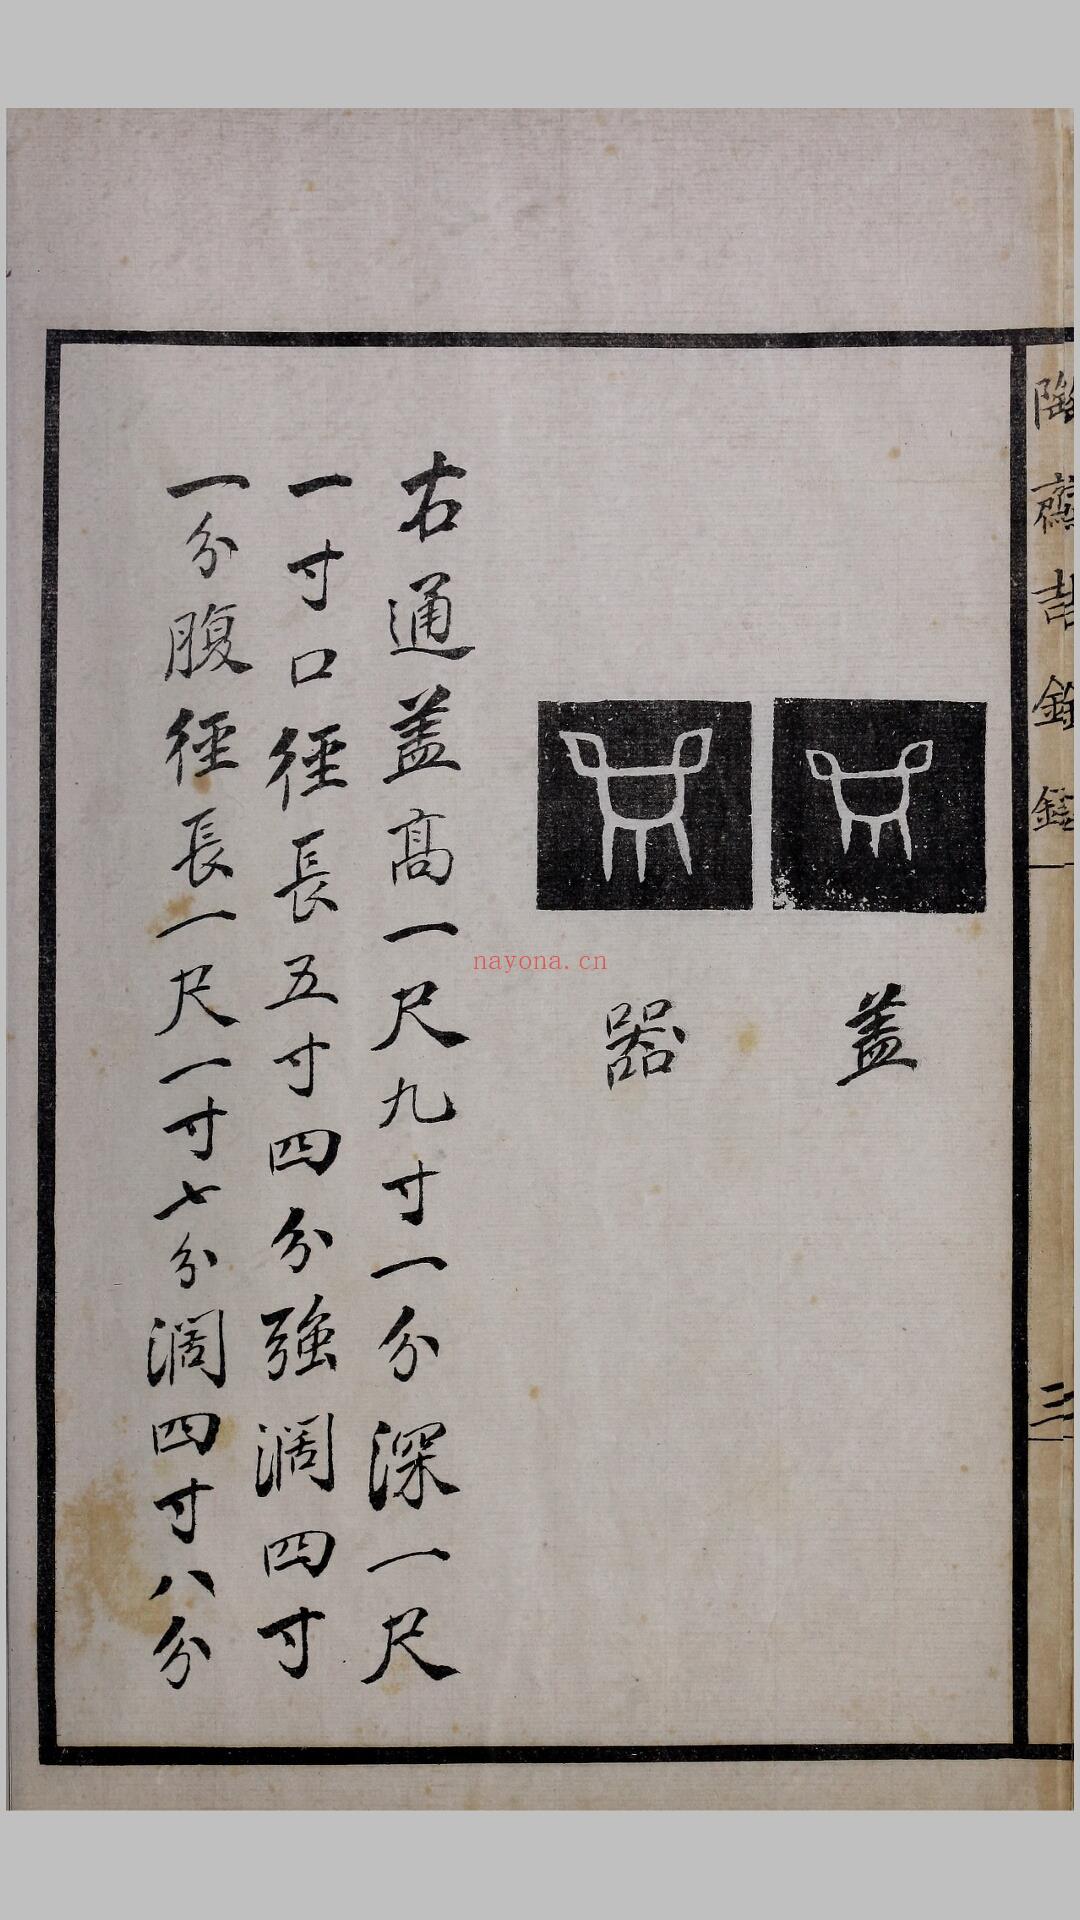 陶齋吉金錄
一
三
蓋
器
右通蓋高一尺九寸一分深一尺
一寸口徑長五寸四分強濶四寸
一分腹徑長一尺一寸七分濶四寸八分
nayona.cn